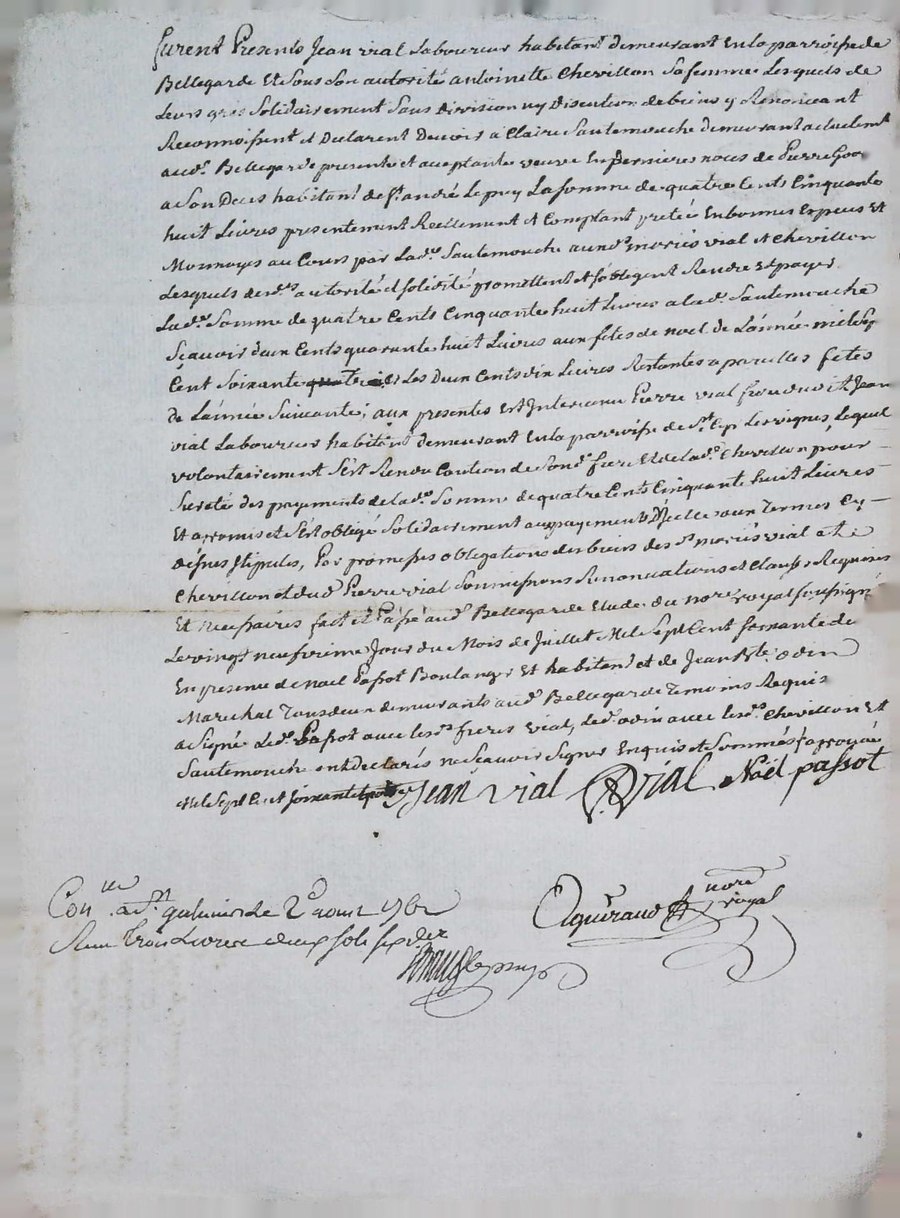 furent Presents Jean vial Laboureur habitant demeurant En la parroisse de
Bellegarde Et Sous Son autorité antoinette Chevillon Sa femme Lesquels de
Leurs grés Solidairement Sans Division ny Discution de biens y Renonceant
Reconnoissent et Declarent Devoir a Claire Sautemouche demeurant actuelemt
aud. Bellegarde presente et acceptante veuve En dernieres noces de Pierre
a Son Deces habitant de St. andré Le puy La Somme de quatre Cents Cinquante
huit Livres presentement Reellement et Comptant pretée En bonnes Especes Et
Monnoyes au Cours par Lade. Sautemouche auxds. mariés vial et Chevillon
Lesquels desdes. autorité et solidité promettent et s'oblegent Rendre et payer
Lade. Somme de quatre Cents Cinquante huit Livres a Lade. Sautemouche
Sçavoir deux Cents quarante huit Livres aux fêtes de noel de L'année mil Sept
Cent Soixante Les Deux Cents dix Livres Restantes a pareilles fêtes
de L'année Suivante; aux presentes Est Intervenu Pierre vial frere dudit Jean
vial Laboureur habitant demeurant En la parroisse de St. Cyr Les vignes, Lequel
volontairement S'est Rendu Caution de Sond. frere Et de lade. Chevillon pour
Sureté des payements de lade. Somme de quatre Cents Cinquante huit Livres
Et a promis et S'est obligé Solidairement au payement D'Icelle aux Termes Cy
dessus stipulés, Par promesses obligations des biens des ds. mariés vial et
Chevillon et dud. Pierre vial Soumissions Renonciations et Clauses Requises
Et necessaires fait et Passé aud. Bellegarde Etude du nore. royal soussigné
Le vingt neufvieme Jour du Mois de Juillet Mil Sept Cent soixante
En presence de noel Passot Boulanger Et habitant et de Jean Bte. odin
Marechal Tous deux demeurants aud. Bellegarde Temoins Requis
a Signé Led. Passot avec Lesds. freres vial, Led. odin avec lesds. Chevillon Et
Sautemouche ont declarés ne Sçavoir Signer Enquis et Sommés approuvé
Mil Sept Cent soixante Jean vial P Vial Noël passot
Conlle. a St. galmier Le 2e aoust 176
Reçu Trois Livres deux sols six der
nore royal